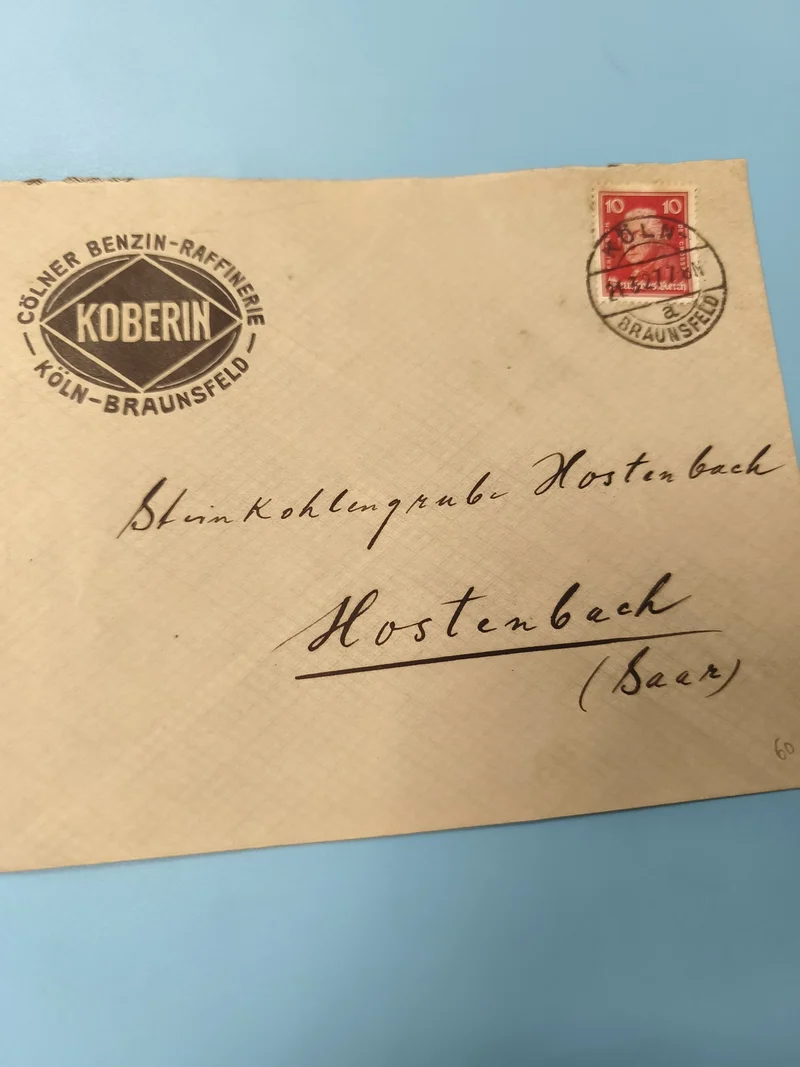 CÖLNER BENZIN-RAFFINERIE
KOBERIN
KÖLN-BRAUNSFELD
10 10
Deutsches Reich
KÖLN-
a
BRAUNSFELD
Steinkohlengrube Hostenbach
Hostenbach
(Saar)
60